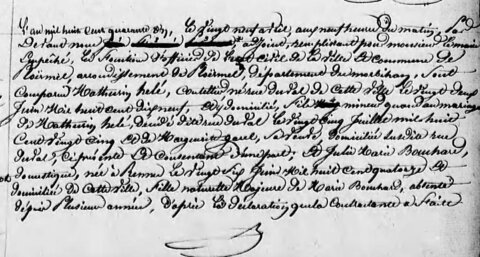 L'an mil huit cent quarante deux, le vingt neuf avril, aux neuf heures du matin, Par
Devant nous adjoint, remplissant pour monsieur le maire
Empeché, les fonctions d'officier de l'état civil de la ville et commune de
Ploërmel, arrondissement de Ploërmel, département du morbihan, Sont
Comparus Mathurin helé, Coutelier né rue du val de Cette ville le vingt deux
Juin Mil huit cent dix neuf, et y domicilié, fils mineur quand au mariage
de Mathurin helé, décédé dite rue du val le vingt cinq Juillet mil huit
Cent vingt cinq et de Marguerite garel, sa veuve domiciliée susdite rue
du val, Ci présente et Consentant d'une part; Et Julie Marie Bouchard,
domestique, née à Rennes le vingt six Juin Mil huit cent quatorze et
domiciliée de Cette ville, fille naturelle Majeure de Marie Bouchard, absente
depuis Plusieurs années, d'après la déclaration que la Contractante a faite